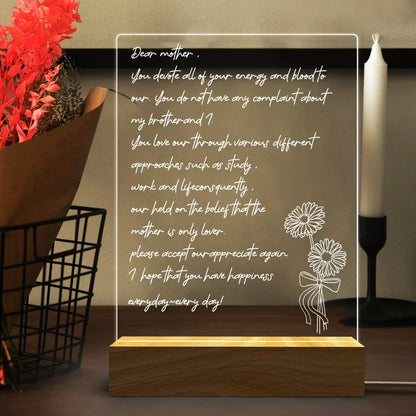 Dear mother .
You devote all of your energy and blood to
our. You do not have any complaint about
my brotherand I.
You love our through various different
approaches such as study .
work and lifeconsquently .
our hold on the belief that the
mother is only lover.
please accept ourappreciate again.
I hope that you have happiness
everyday~every day!